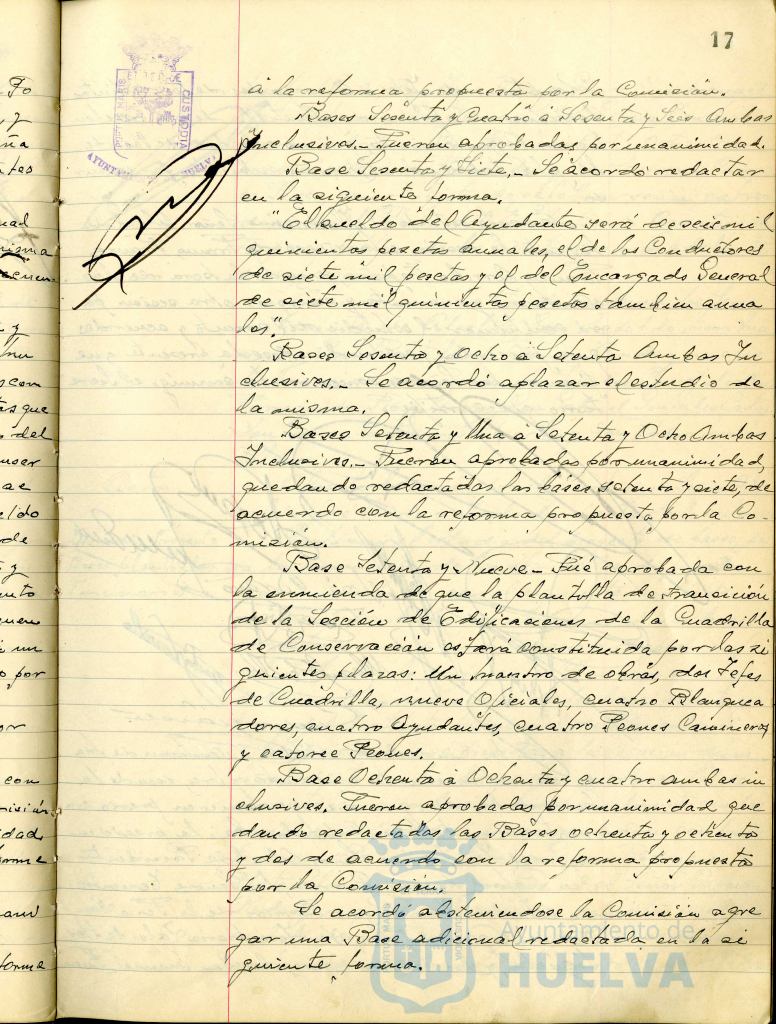 17
á la reforma propuesta por la Comisión.
Bases Sesenta y Cuatro á Sesenta y Seis Ambas
Inclusives.- Fueron aprobadas por unanimidad.
Base Sesenta y Siete.- Se acordó redactar
en la siguiente forma.
"El sueldo del Ayudante será de seis mil
quinientas pesetas anuales, el de los Conductores
de siete mil pesetas y el del Encargado General
de siete mil quinientas pesetas tambien anua
les."
Bases Sesenta y Ocho á Setenta Ambas In
clusives.- Se acordó aplazar el estudio de
la misma.
Bases Setenta y Una á Setenta y Ocho Ambas
Inclusives.- Fueron aprobadas por unanimidad,
quedando redactadas las bases setenta y siete, de
acuerdo con la reforma propuesta por la Co-
misión.
Base Setenta y Nueve.- Fué aprobada con
la enmienda de que la plantilla de transición
de la Sección de Edificaciones de la Cuadrilla
de Conservación estará constituida por las si
guientes plazas: Un maestro de obras, dos Jefes
de Cuadrilla, nueve Oficiales, cuatro Blanquea
dores, cuatro Ayudantes, cuatro Peones Camineros,
y catorce Peones.
Base Ochenta á Ochenta y cuatro ambas in
clusives. Fueron aprobadas por unanimidad que
dando redactadas las Bases ochenta y ochenta
y dos de acuerdo con la reforma propuesta
por la Comisión.
Se acordó absteniendose la Comisión agre
gar una Base adicional redactada en la si
guiente forma.
Ayuntamiento de
HUELVA